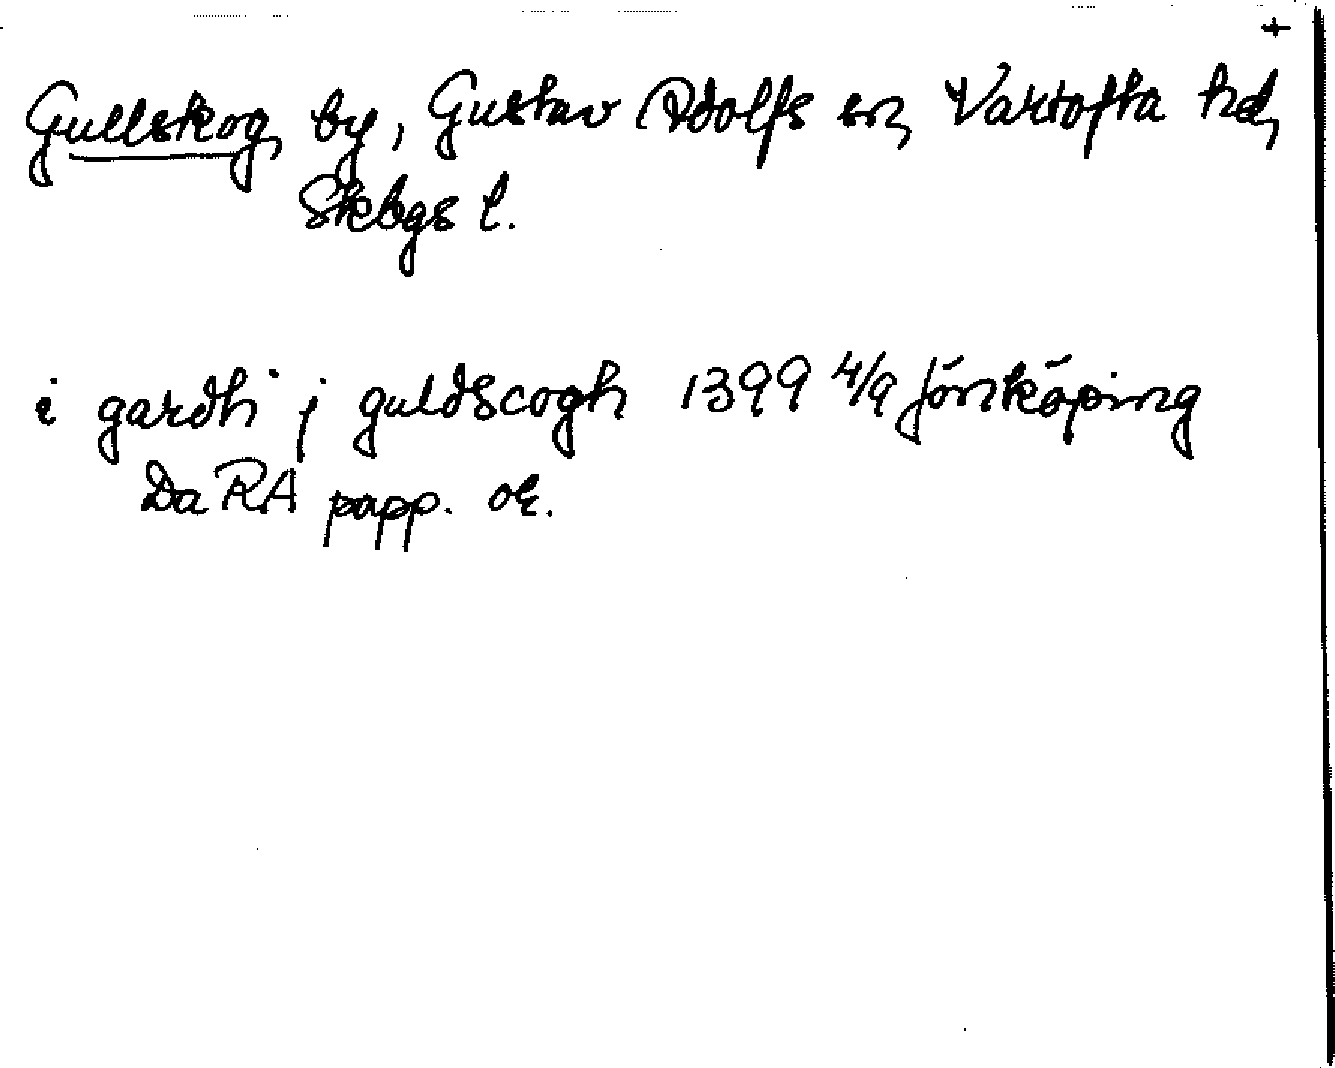 +
Gullskog by, Gustav Adolfs sn, Vartofta hd,
Skbgs l.
i gardh j guldscogh 1399 4/9 Jönköping
Da RA papp. or.